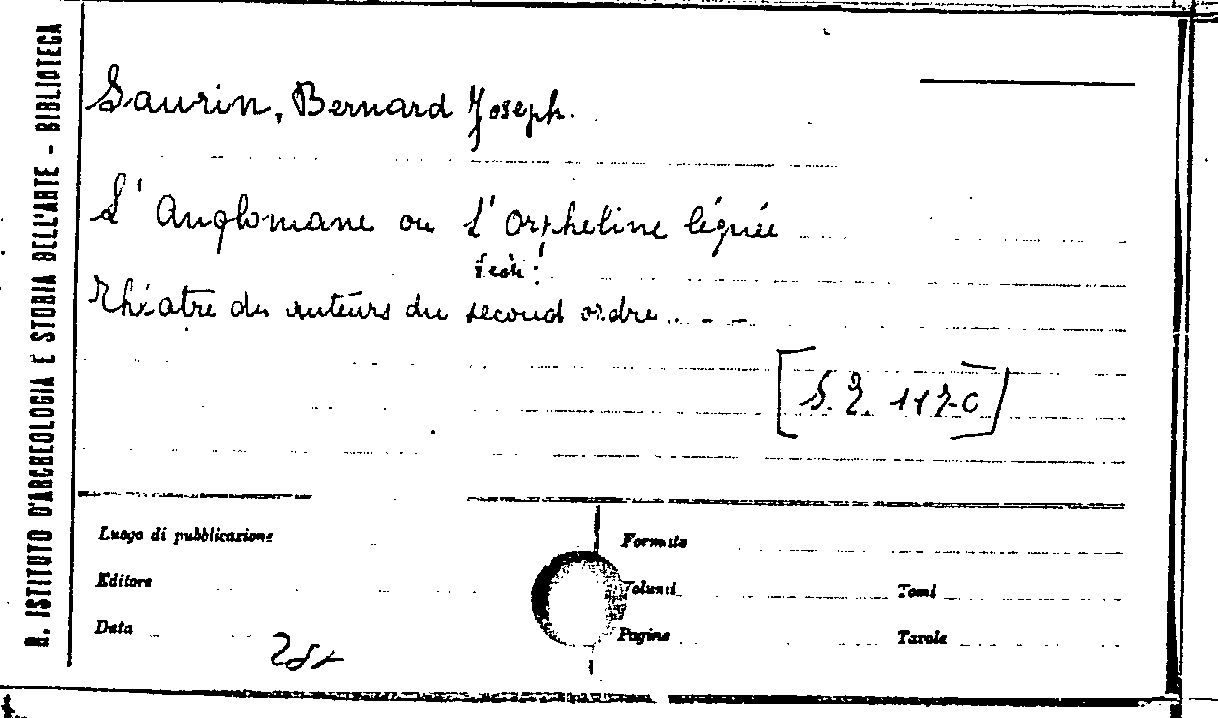 R. ISTITUTO D'ARCHEOLOGIA E STORIA DELL'ARTE - BIBLIOTECA
Saurin, Bernard Joseph.
L'Anglomane ou L'Orpheline léguée
Théatre des auteurs du second ordre . . - -
Luogo di pubblicazione
Formato
Editore
Volumi
Tomi
Data
Pagine
Tavole